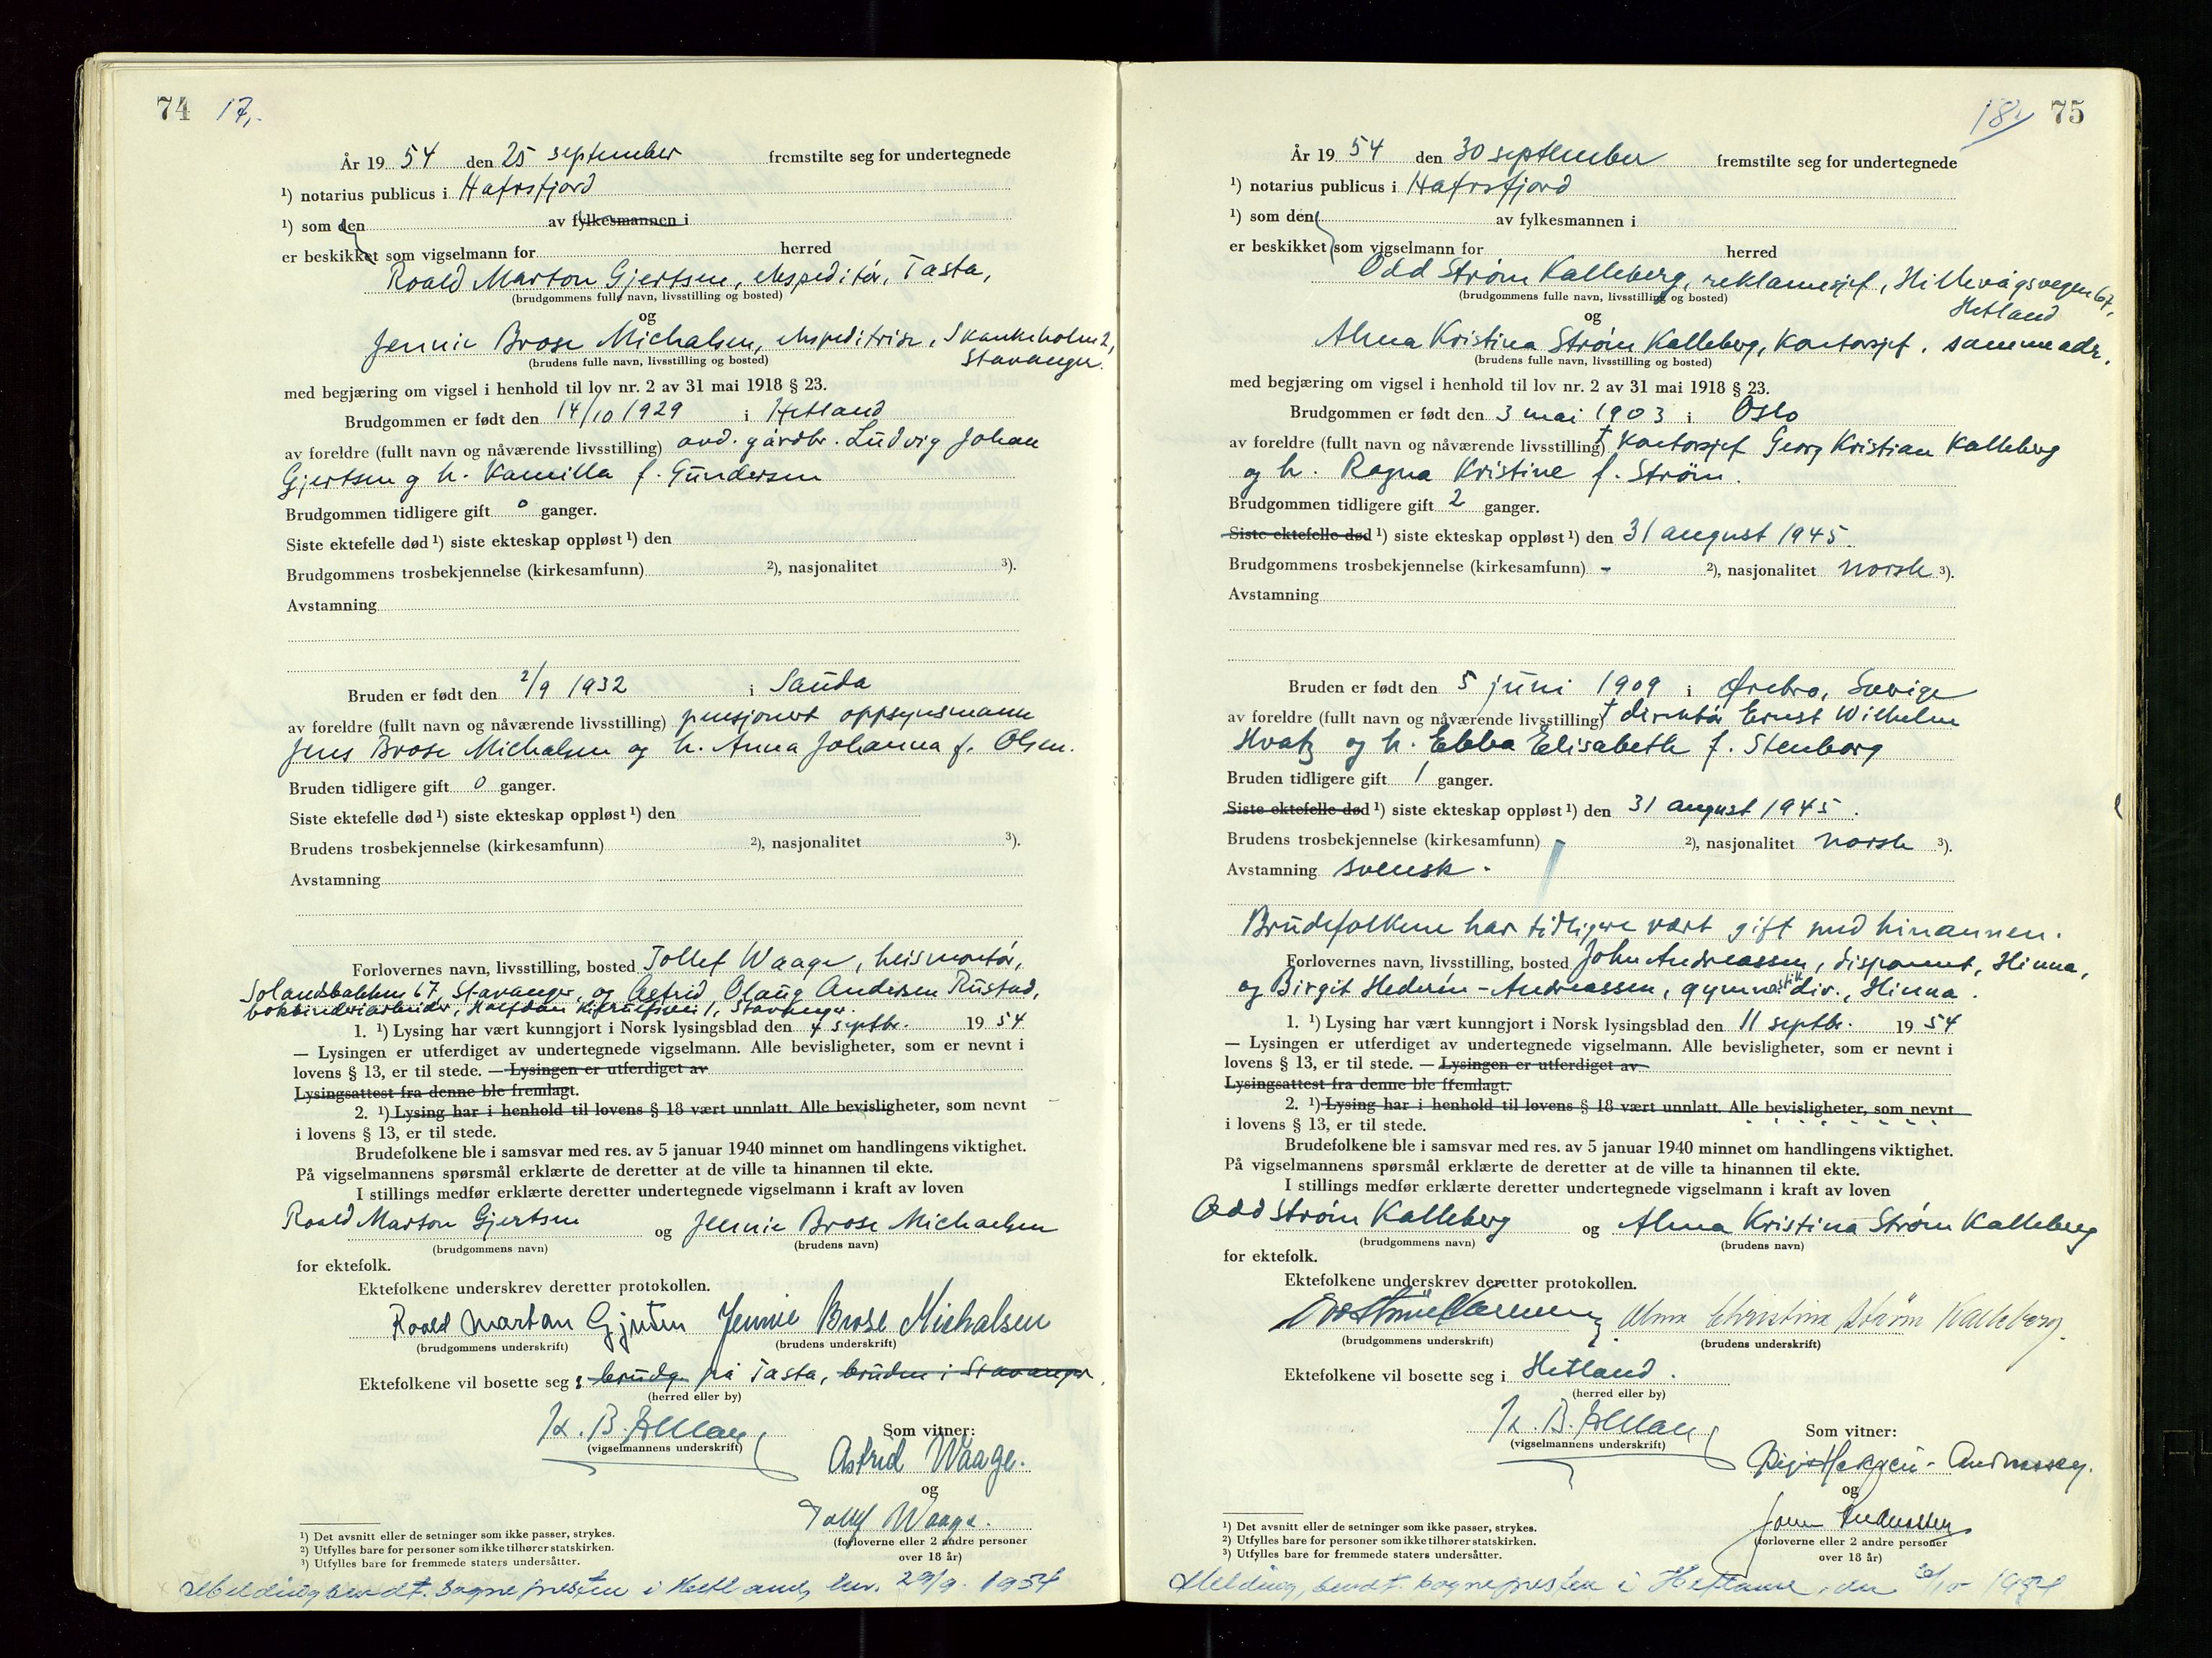 74 17,.
År 19 54 den 25 september fremstilte seg for undertegnede
¹) notarius publicus i Hafrsfjord
¹) som den av fylkesmannen i
er beskikket som vigselmann for herred
Roald Marton Gjertsen, ekspeditør, Tasta,
(brudgommens fulle navn, livsstilling og bosted)
og
Jennie Brose Michalsen, ekspeditrise, Skankeholm 2,
Stavanger.
(brudens fulle navn, livsstilling og bosted)
med begjæring om vigsel i henhold til lov nr. 2 av 31 mai 1918 § 23.
Brudgommen er født den 14/10 1929 i Hetland
av foreldre (fullt navn og nåværende livsstilling) avd. gårdbr. Ludvig Johan
Gjertsen og h. Kamilla f. Gundersen
Brudgommen tidligere gift 0 ganger.
Siste ektefelle død ¹) siste ekteskap oppløst ¹) den
Brudgommens trosbekjennelse (kirkesamfunn) ²), nasjonalitet ³).
Avstamning
Bruden er født den 2/9 1932 i Sauda
av foreldre (fullt navn og nåværende livsstilling) pensjonert oppsynsmann
Jens Brose Michalsen og h. Anna Johanna f. Olsen.
Bruden tidligere gift 0 ganger.
Siste ektefelle død ¹) siste ekteskap oppløst ¹) den
Brudens trosbekjennelse (kirkesamfunn) ²), nasjonalitet ³).
Avstamning
Forlovernes navn, livsstilling, bosted Tollef Waage, heismontør,
Solandsbakken 67, Stavanger, og Astrid Olaug Andersen Rustad,
bokbinderiarbeider, Halfdan 1, Stavanger.
1. ¹) Lysing har vært kunngjort i Norsk lysingsblad den 4 septbr. 19 54
— Lysingen er utferdiget av undertegnede vigselmann. Alle bevisligheter, som er nevnt i
lovens § 13, er til stede. — Lysingen er utferdiget av
Lysingsattest fra denne ble fremlagt.
2. ¹) Lysing har i henhold til lovens § 18 vært unnlatt. Alle bevisligheter, som nevnt
i lovens § 13, er til stede.
Brudefolkene ble i samsvar med res. av 5 januar 1940 minnet om handlingens viktighet.
På vigselmannens spørsmål erklærte de deretter at de ville ta hinannen til ekte.
I stillings medfør erklærte deretter undertegnede vigselmann i kraft av loven
Roald Marton Gjertsen og Jennie Brose Michaelsen
(brudgommens navn) (brudens navn)
for ektefolk.
Ektefolkene underskrev deretter protokollen.
Roald Marton Gjertsen Jennie Brose Michalsen
(brudgommens underskrift) (brudens underskrift)
Ektefolkene vil bosette seg i brudg. på Tasta, bruden i Stavanger.
(herred eller by)
(vigselmannens underskrift)
Som vitner:
Astrid Waage.
og
Tollef Waage.
(forloverne eller 2 andre personer
over 18 år)
¹) Det avsnitt eller de setninger som ikke passer, strykes.
²) Utfylles bare for personer som ikke tilhører statskirken.
³) Utfylles bare for fremmede staters undersåtter.
Melding sendt. sognepresten i Hetland, den 29/9. 1954
18, 75
År 19 54 den 30 september fremstilte seg for undertegnede
¹) notarius publicus i Hafrsfjord
¹) som den av fylkesmannen i
er beskikket som vigselmann for herred
Odd Strøm Kalleberg, reklamesjef, Hillevågsvegen 67,
Hetland
(brudgommens fulle navn, livsstilling og bosted)
og
Alma Kristina Strøm Kalleberg, kontorsjef, samme adr.
(brudens fulle navn, livsstilling og bosted)
med begjæring om vigsel i henhold til lov nr. 2 av 31 mai 1918 § 23.
Brudgommen er født den 3 mai 1903 i Oslo
av foreldre (fullt navn og nåværende livsstilling) † kontorsjef Georg Kristian Kalleberg
og h. Ragna Kristine f. Strøm.
Brudgommen tidligere gift 2 ganger.
Siste ektefelle død ¹) siste ekteskap oppløst ¹) den 31 august 1945.
Brudgommens trosbekjennelse (kirkesamfunn) - ²), nasjonalitet norsk ³).
Avstamning
Bruden er født den 5 juni 1909 i Ørebro, Sverige
av foreldre (fullt navn og nåværende livsstilling) † direktør Ernst Wilhelm
Hvatz og h. Ebba Elisabeth f. Stenborg
Bruden tidligere gift 1 ganger.
Siste ektefelle død ¹) siste ekteskap oppløst ¹) den 31 august 1945.
Brudens trosbekjennelse (kirkesamfunn) - ²), nasjonalitet norsk ³).
Avstamning svensk.
Brudefolkene har tidligere vært gift med hinannen.
Forlovernes navn, livsstilling, bosted John Andreassen, disponent, Hinna,
og Birgit Hedrén-Andreassen, gymnastikdir., Hinna.
1. ¹) Lysing har vært kunngjort i Norsk lysingsblad den 11 septbr. 19 54
— Lysingen er utferdiget av undertegnede vigselmann. Alle bevisligheter, som er nevnt i
lovens § 13, er til stede. — Lysingen er utferdiget av
Lysingsattest fra denne ble fremlagt.
2. ¹) Lysing har i henhold til lovens § 18 vært unnlatt. Alle bevisligheter, som nevnt
i lovens § 13, er til stede.
Brudefolkene ble i samsvar med res. av 5 januar 1940 minnet om handlingens viktighet.
På vigselmannens spørsmål erklærte de deretter at de ville ta hinannen til ekte.
I stillings medfør erklærte deretter undertegnede vigselmann i kraft av loven
Odd Strøm Kalleberg og Alma Kristina Strøm Kalleberg
(brudgommens navn) (brudens navn)
for ektefolk.
Ektefolkene underskrev deretter protokollen.
Alma Christina Strøm Kalleberg.
(brudgommens underskrift) (brudens underskrift)
Ektefolkene vil bosette seg i Hetland.
(herred eller by)
(vigselmannens underskrift)
Som vitner:
Andreassen.
og
John Andreassen
(forloverne eller 2 andre personer
over 18 år)
¹) Det avsnitt eller de setninger som ikke passer, strykes.
²) Utfylles bare for personer som ikke tilhører statskirken.
³) Utfylles bare for fremmede staters undersåtter.
Melding, sendt. sognepresten i Hetland, den 1954